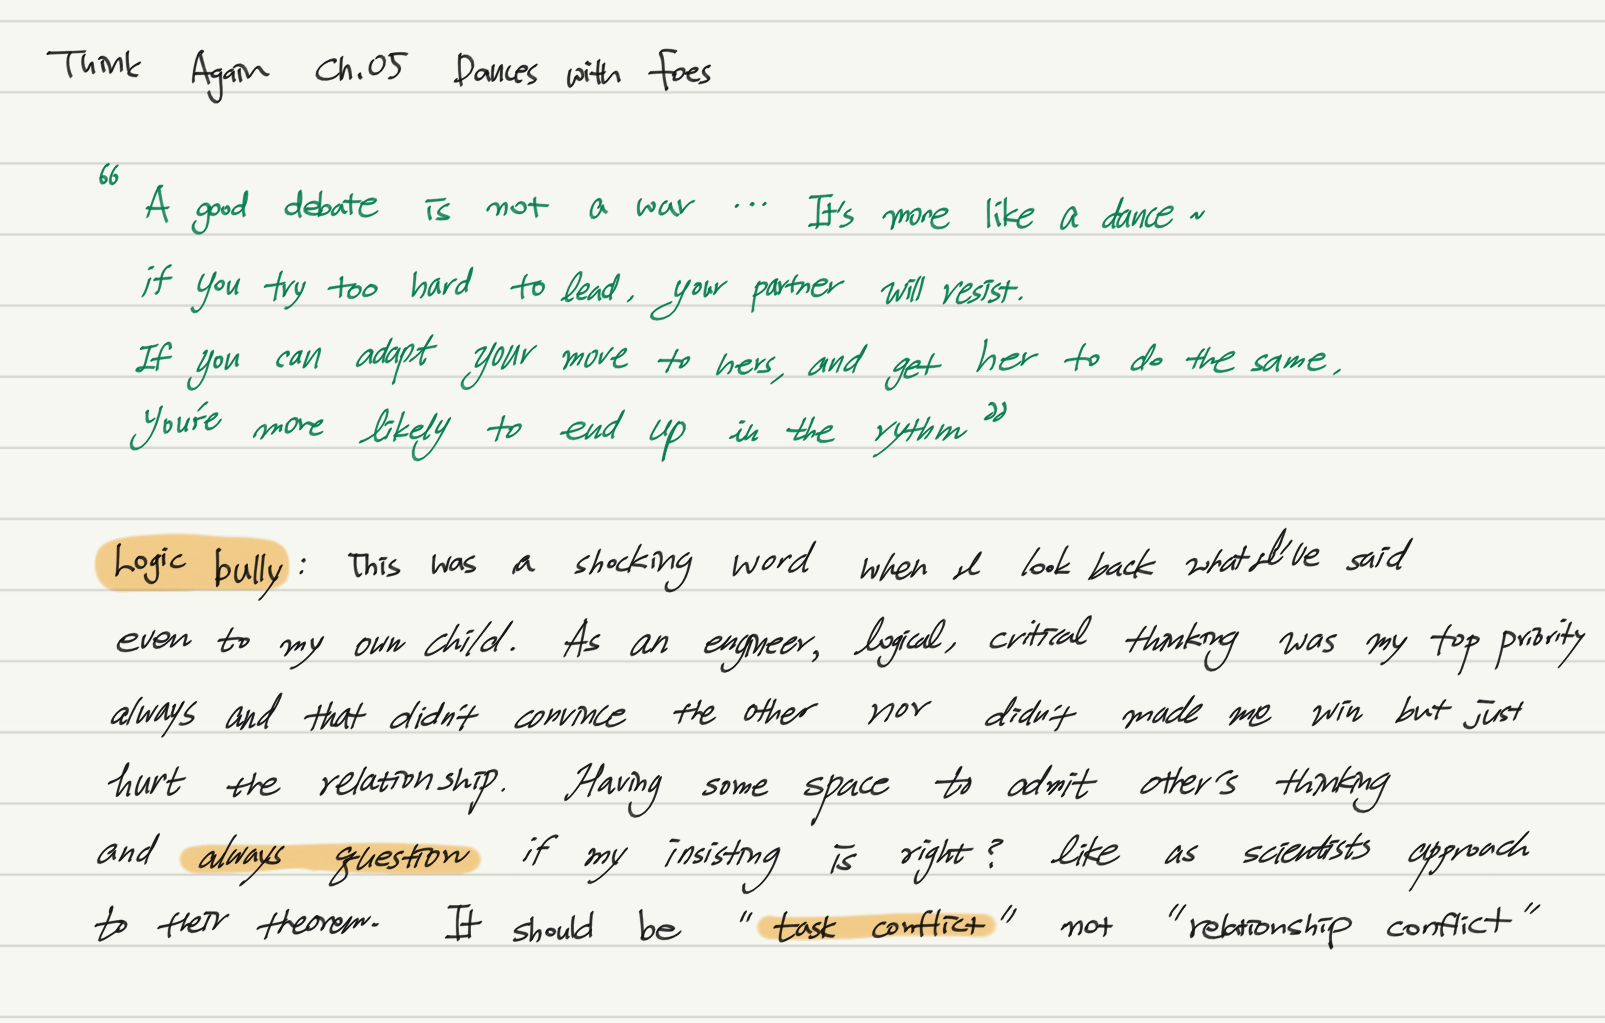 Think Again Ch.05 Dances with foes
“ A good debate is not a war ... It's more like a dance ~
if you try too hard to lead, your partner will resist.
If you can adapt your move to hers, and get her to do the same,
You're more likely to end up in the rythm ”
Logic bully : This was a shocking word when I look back what I've said
even to my own child. As an engineer, logical, critical thinking was my top priority
always and that didn't convince the other nor didn't made me win but just
hurt the relationship. Having some space to admit other's thinking
and always question if my insisting is right? like as scientists approach
to their theorem. It should be "task conflict" not "relationship conflict"